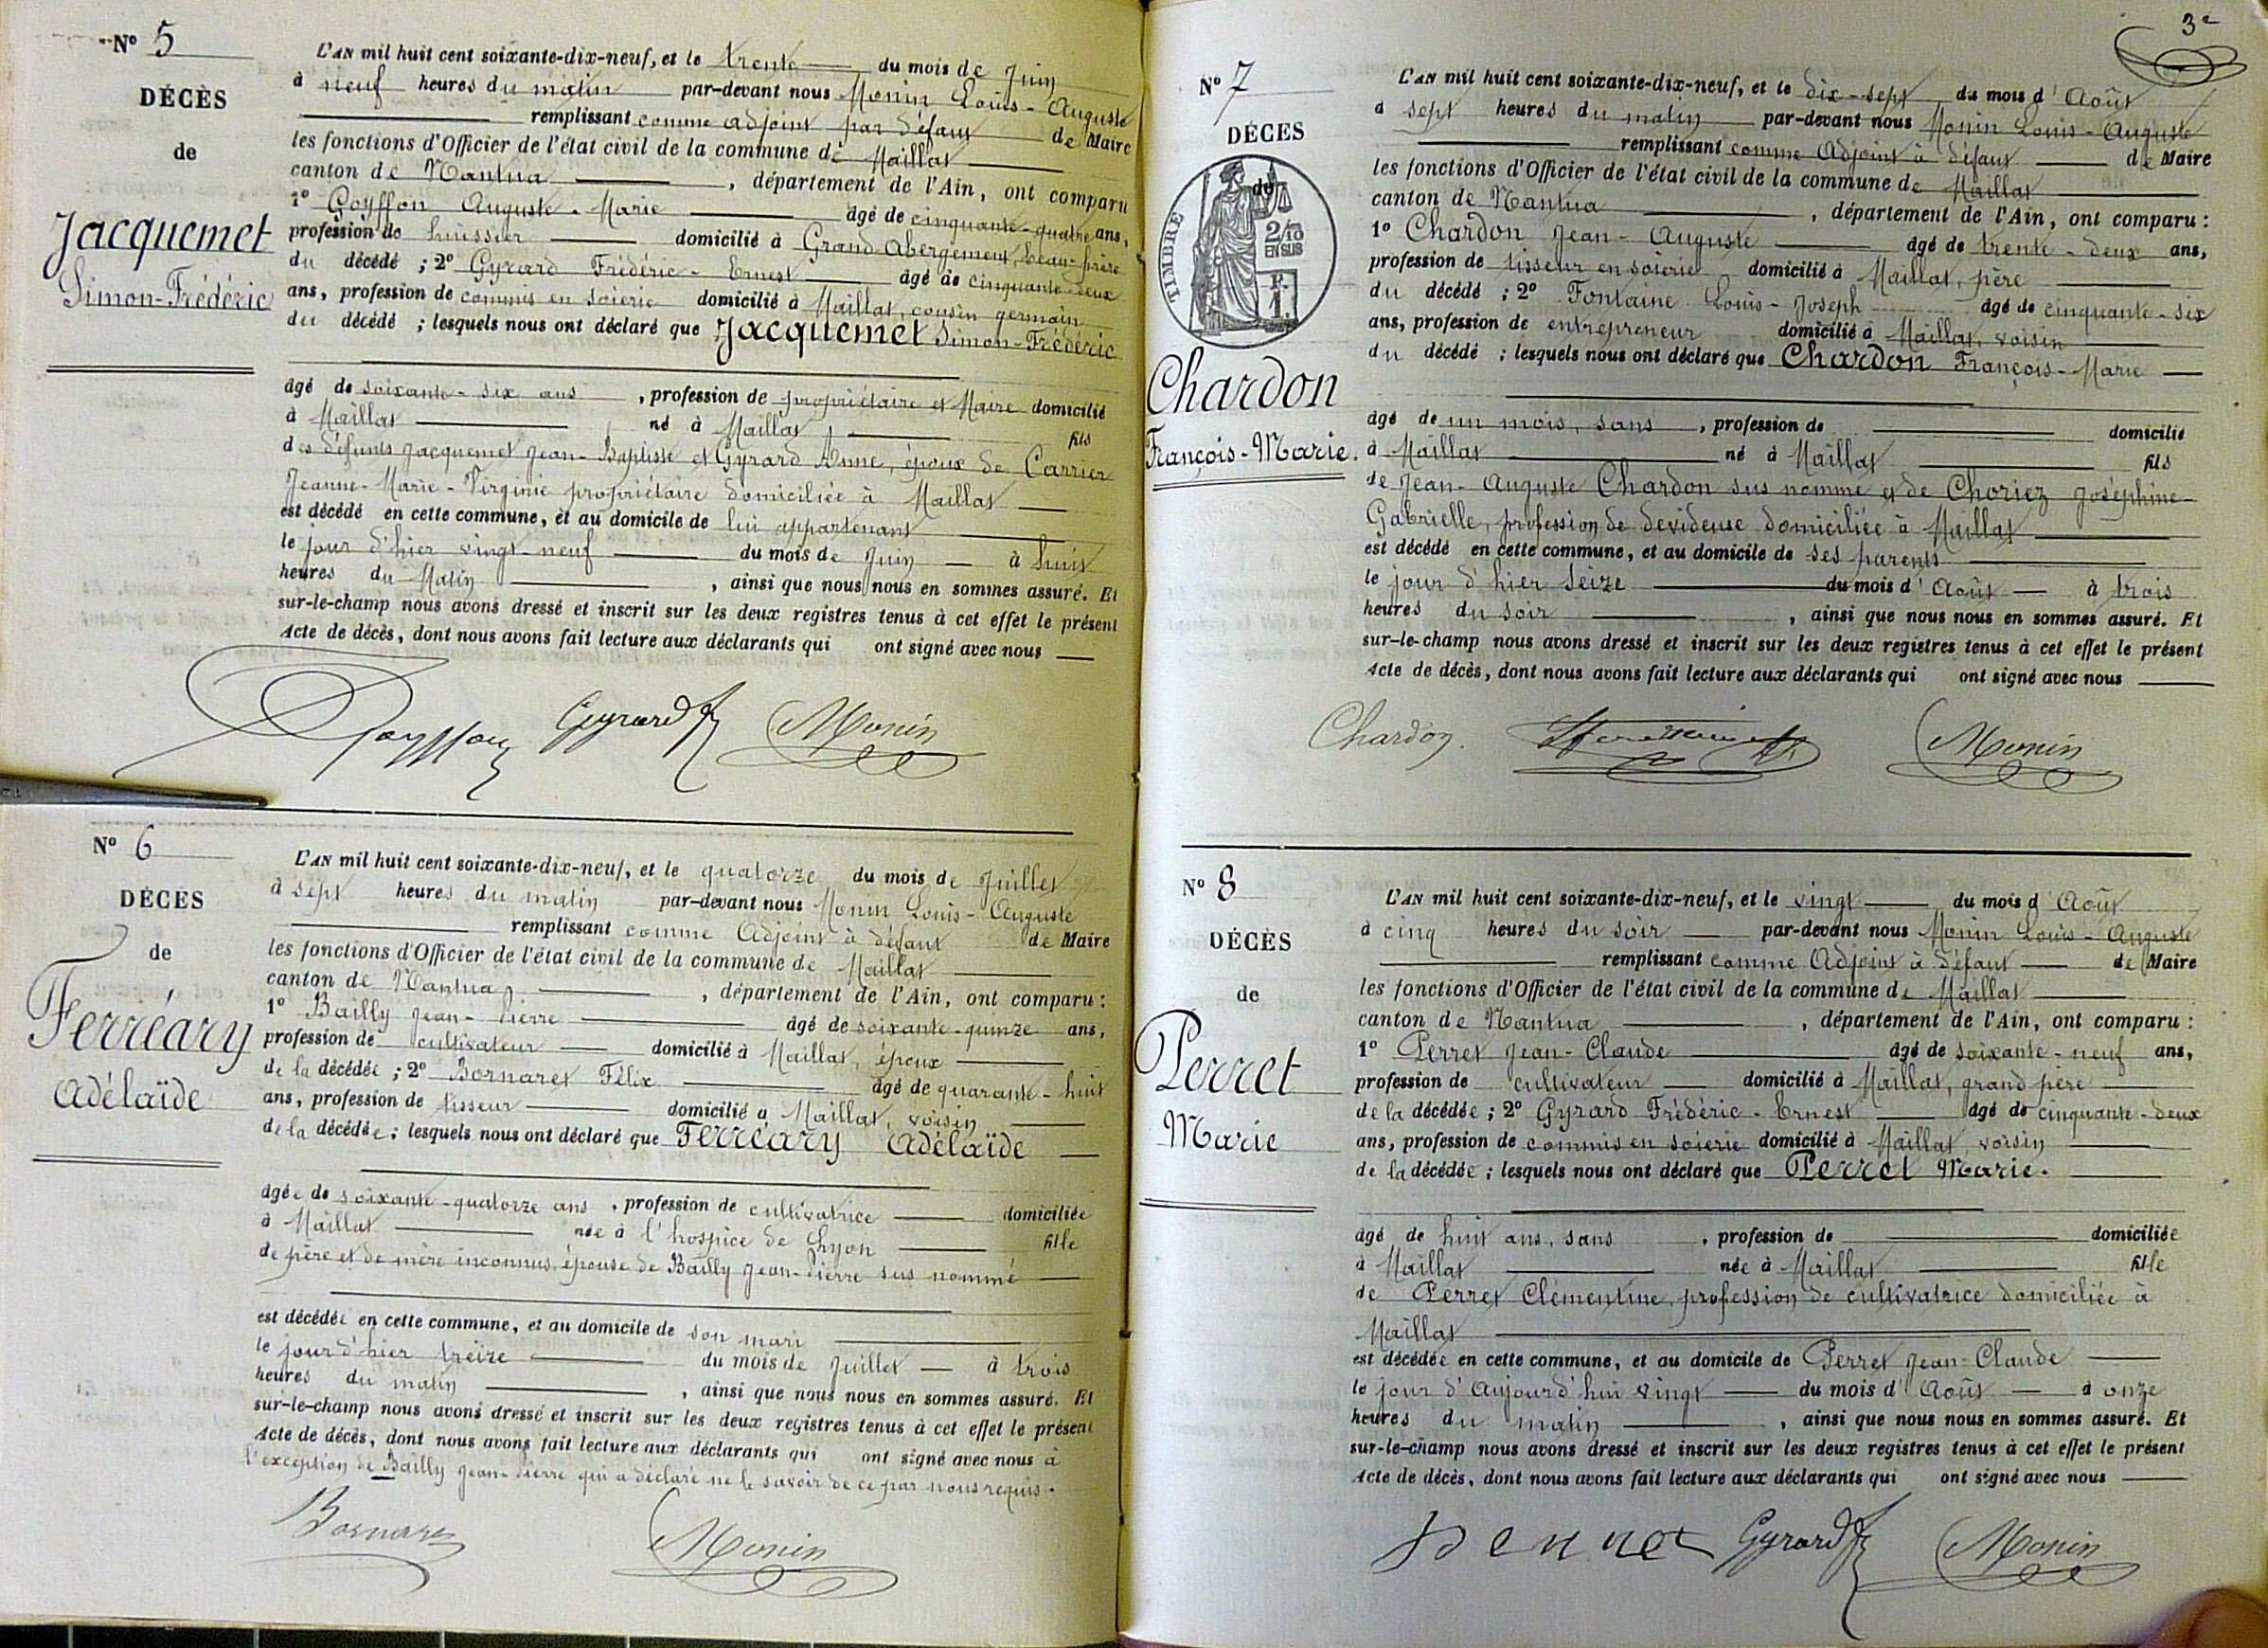 Nº 5
DÉCÈS
de
Jacquemet
Simon-Frédéric
L'AN mil huit cent soixante-dix-neuf, et le trente du mois de Juin
à neuf heures du matin par-devant nous Monin Louis-Auguste
remplissant comme adjoint par défaut de Maire
les fonctions d'Officier de l'état civil de la commune de Maillat
canton de Nantua, département de l'Ain, ont comparu
1º Goyffon Auguste-Marie âgé de cinquante-quatre ans,
profession de huissier domicilié à Grand Abergement, beau-frère
du décédé ; 2º Gyrard Frédéric-Ernest âgé de cinquante-deux
ans, profession de commis en soierie domicilié à Maillat, cousin germain
du décédé ; lesquels nous ont déclaré que Jacquemet Simon-Frédéric
âgé de soixante-six ans, profession de propriétaire et Maire domicilié
à Maillat né à Maillat fils
des défunts Jacquemet Jean-Baptiste et Gyrard Anne, époux de Carrier
Jeanne-Marie-Virginie propriétaire domiciliée à Maillat
est décédé en cette commune, et au domicile de lui appartenant
le jour d'hier vingt-neuf du mois de Juin à huit
heures du Matin, ainsi que nous nous en sommes assuré. Et
sur-le-champ nous avons dressé et inscrit sur les deux registres tenus à cet effet le présent
Acte de décès, dont nous avons fait lecture aux déclarants qui ont signé avec nous
Goyffon Gyrard Monin
Nº 6
DÉCÈS
de
Ferréary
Adélaïde
L'AN mil huit cent soixante-dix-neuf, et le quatorze du mois de Juillet
à sept heures du matin par-devant nous Monin Louis-Auguste
remplissant comme Adjoint à défaut de Maire
les fonctions d'Officier de l'état civil de la commune de Maillat
canton de Nantua, département de l'Ain, ont comparu :
1º Bailly Jean-Pierre âgé de soixante-quinze ans,
profession de cultivateur domicilié à Maillat, époux
de la décédée ; 2º Bornaret Félix âgé de quarante-huit
ans, profession de tisseur domicilié à Maillat, voisin
de la décédée ; lesquels nous ont déclaré que Ferréary Adélaïde
âgée de soixante-quatorze ans, profession de cultivatrice domiciliée
à Maillat née à l'hospice de Lyon fille
de père et de mère inconnus, épouse de Bailly Jean-Pierre sus nommé
est décédée en cette commune, et au domicile de son mari
le jour d'hier treize du mois de Juillet à trois
heures du matin, ainsi que nous nous en sommes assuré. Et
sur-le-champ nous avons dressé et inscrit sur les deux registres tenus à cet effet le présent
Acte de décès, dont nous avons fait lecture aux déclarants qui ont signé avec nous à
l'exception de Bailly Jean-Pierre qui a déclaré ne le savoir de ce par nous requis.
Bornaret Monin
3e
Nº 7
DÉCES
de
TIMBRE
2/10
EN SUS
Chardon
François-Marie.
L'AN mil huit cent soixante-dix-neuf, et le dix-sept du mois d'Août
à sept heures du matin par-devant nous Monin Louis-Auguste
remplissant comme Adjoint à défaut de Maire
les fonctions d'Officier de l'état civil de la commune de Maillat
canton de Nantua, département de l'Ain, ont comparu :
1º Chardon Jean-Auguste âgé de trente-deux ans,
profession de tisseur en soierie domicilié à Maillat, père
du décédé ; 2º Fontaine Louis-Joseph âgé de cinquante-six
ans, profession de entrepreneur domicilié à Maillat, voisin
du décédé ; lesquels nous ont déclaré que Chardon François-Marie
âgé de un mois, sans, profession de domicilié
à Maillat né à Maillat fils
de Jean-Auguste Chardon sus nommé et de Choriez Joséphine-
Gabrielle, profession de dévideuse domiciliée à Maillat
est décédé en cette commune, et au domicile de ses parents
le jour d'hier seize du mois d'Août à trois
heures du soir, ainsi que nous nous en sommes assuré. Et
sur-le-champ nous avons dressé et inscrit sur les deux registres tenus à cet effet le présent
Acte de décès, dont nous avons fait lecture aux déclarants qui ont signé avec nous
Chardon. Monin
Nº 8
DÉCÈS
de
Perret
Marie
L'AN mil huit cent soixante-dix-neuf, et le vingt du mois d'Août
à cinq heures du soir par-devant nous Monin Louis-Auguste
remplissant comme Adjoint à défaut de Maire
les fonctions d'Officier de l'état civil de la commune de Maillat
canton de Nantua, département de l'Ain, ont comparu :
1º Perret Jean-Claude âgé de soixante-neuf ans,
profession de cultivateur domicilié à Maillat, grand père
de la décédée ; 2º Gyrard Frédéric-Ernest âgé de cinquante-deux
ans, profession de commis en soierie domicilié à Maillat, voisin
de la décédée ; lesquels nous ont déclaré que Perret Marie.
âgé de huit ans, sans, profession de domiciliée
à Maillat née à Maillat fille
de Perret Clémentine, profession de cultivatrice domiciliée à
Maillat
est décédée en cette commune, et au domicile de Perret Jean-Claude
le jour d'Aujourd'hui vingt du mois d'Août à onze
heures du matin, ainsi que nous nous en sommes assuré. Et
sur-le-champ nous avons dressé et inscrit sur les deux registres tenus à cet effet le présent
Acte de décès, dont nous avons fait lecture aux déclarants qui ont signé avec nous
Perret Gyrard Monin